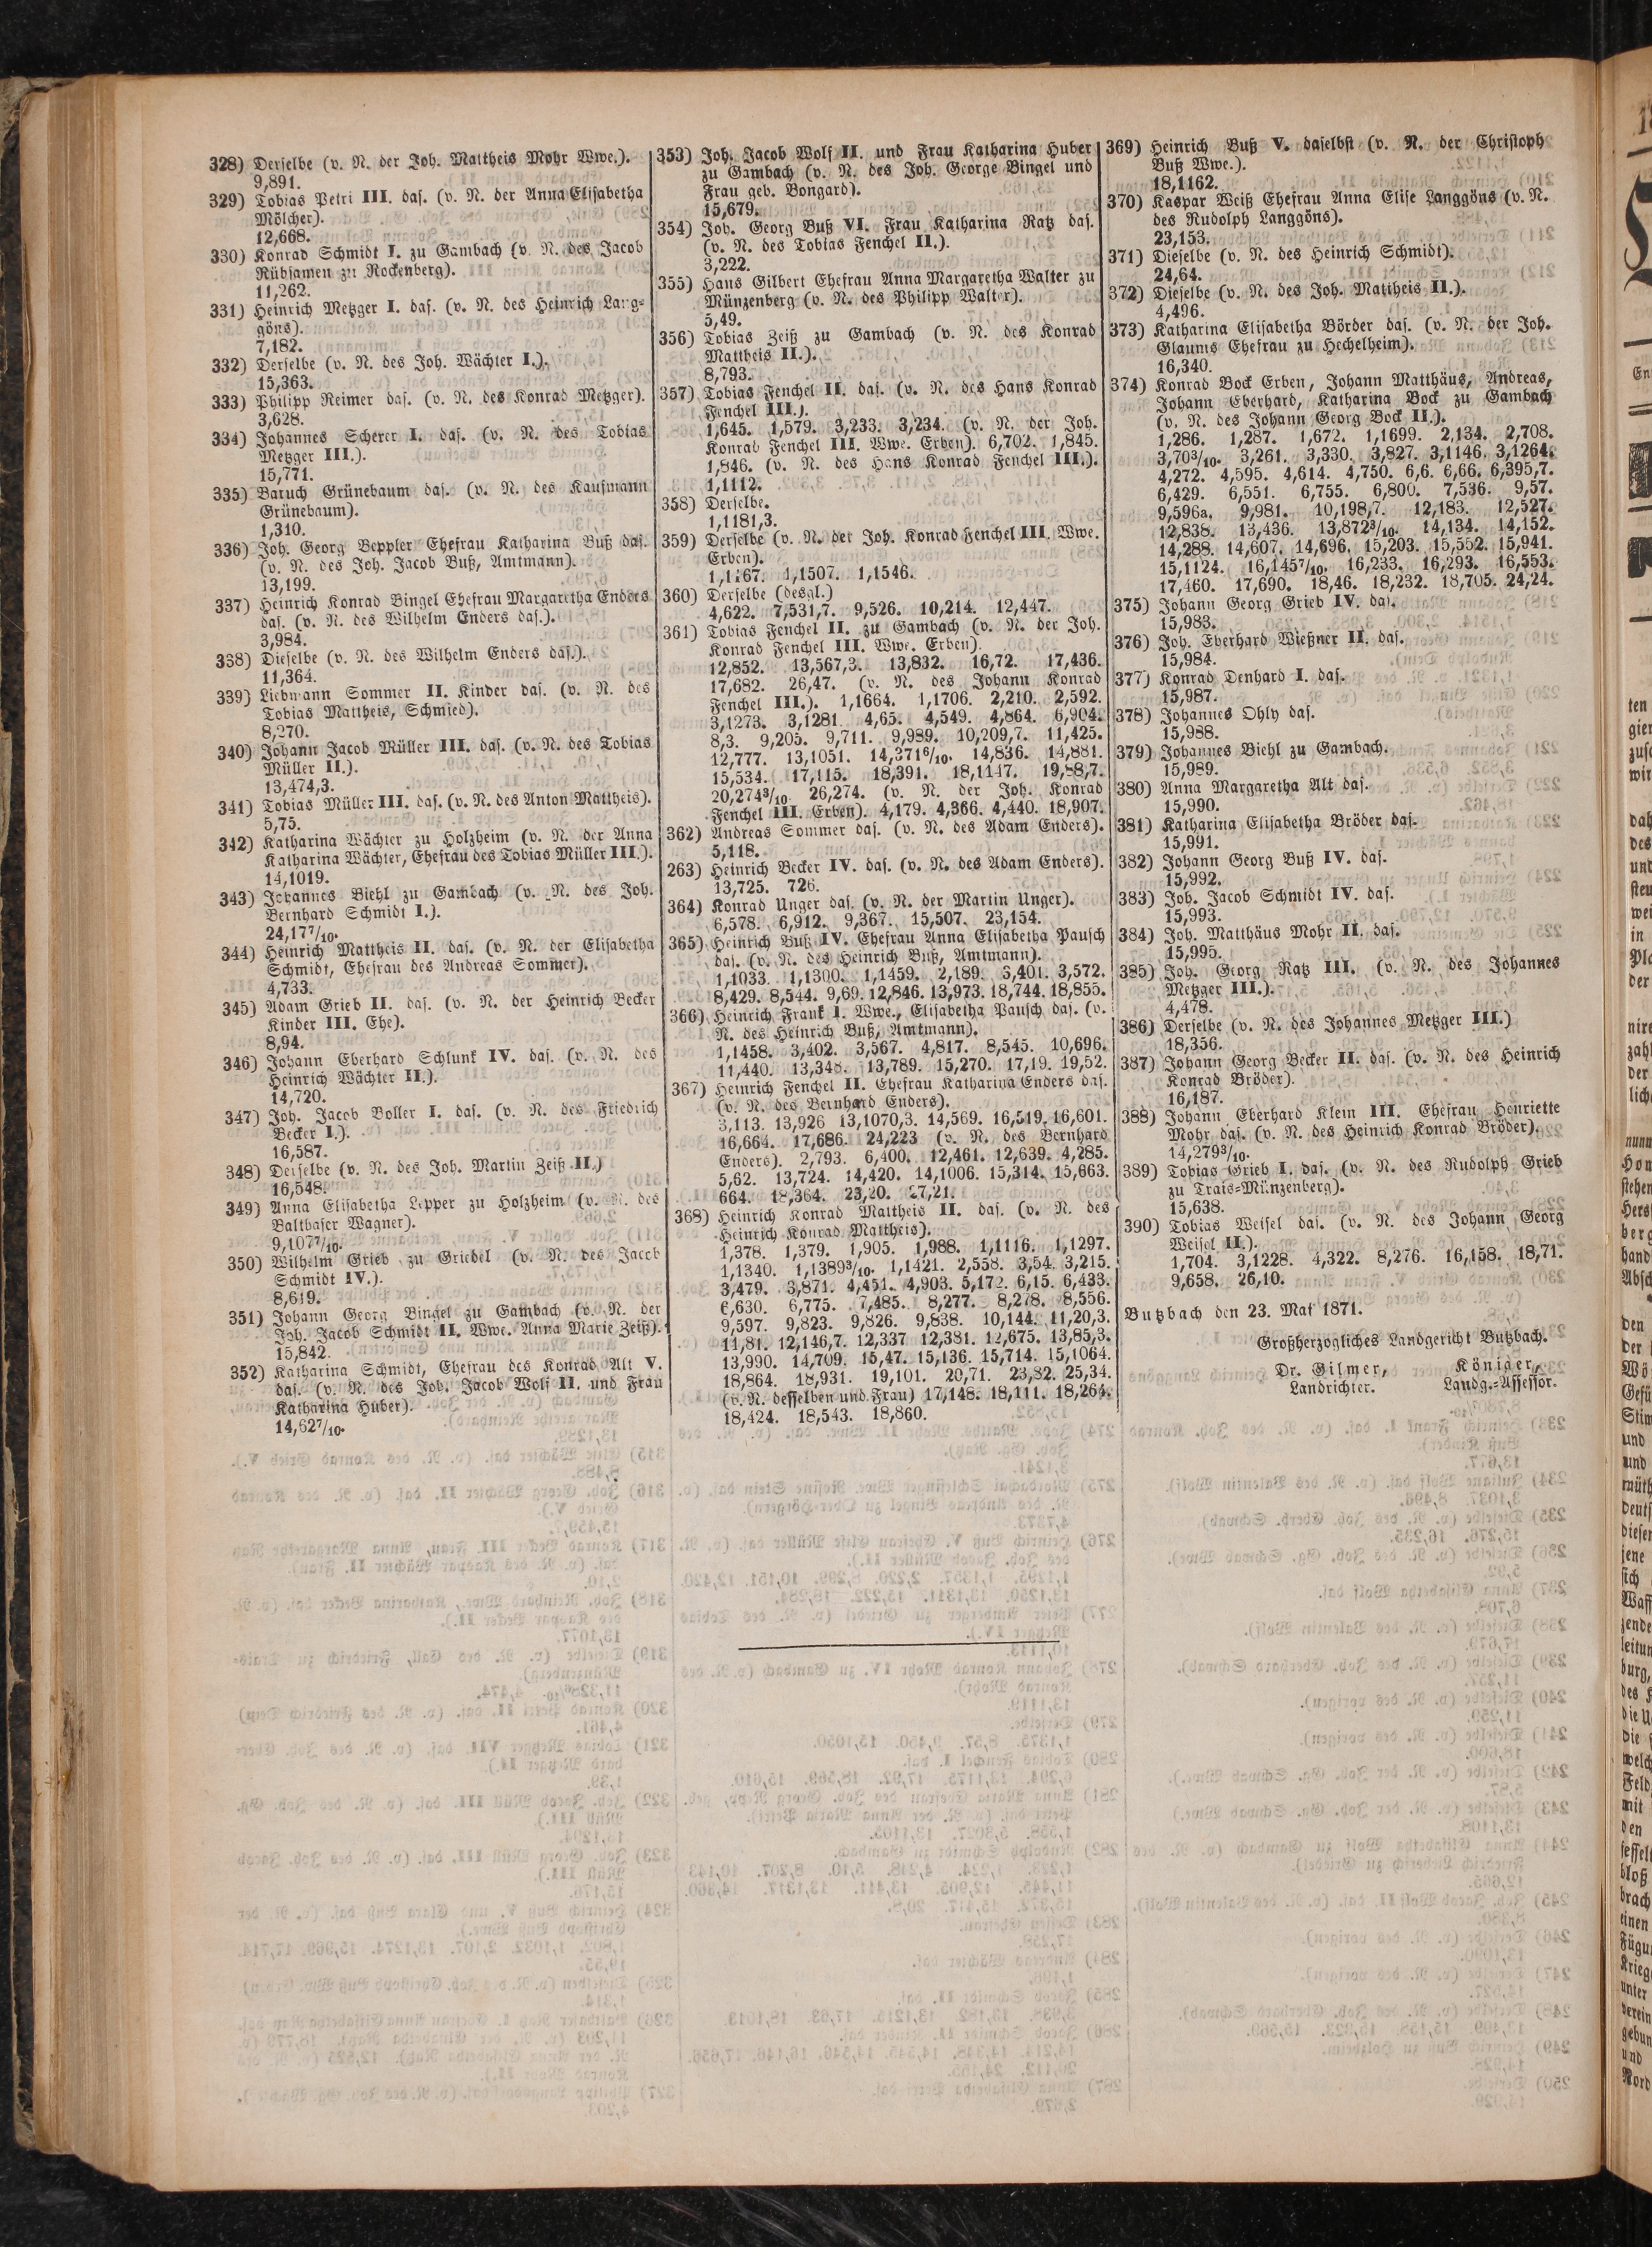 328) Derselbe (v. N. der Joh. Mattheis Mohr Wwe.).
9,891.
329) Tobias Petri III. das. (v. N. der Anna Elisabetha
Mölcher).
12,668.
330) Konrad Schmidt I. zu Gambach (v. N. des Jacob
Rübsamen zu Rockenberg).
11,262.
331) Heinrich Metzger I. das. (v. N. des Heinrich Lang-
göns).
7,182.
332) Derselbe (v. N. des Joh. Wächter I.).
15,363.
333) Philipp Reimer das. (v. N. des Konrad Metzger).
3,628.
334) Johannes Scherer I. das. (v. N. des Tobias
Metzger III.).
15,771.
335) Baruch Grünebaum das. (v. N. des Kaufmann
Grünebaum).
1,310.
336) Joh. Georg Beppler Ehefrau Katharina Buß das.
(v. N. des Joh. Jacob Buß, Amtmann).
13,199.
337) Heinrich Konrad Bingel Ehefrau Margaretha Enders
das. (v. N. des Wilhelm Enders das.).
3,984.
338) Dieselbe (v. N. des Wilhelm Enders das.).
11,364.
339) Liebmann Sommer II. Kinder das. (v. N. des
Tobias Mattheis, Schmied).
8,270.
340) Johann Jacob Müller III. das. (v. N. des Tobias
Müller II.).
13,474,3.
341) Tobias Müller III. das. (v. N. des Anton Mattheis).
5,75.
342) Katharina Wächter zu Holzheim (v. N. der Anna
Katharina Wächter, Ehefrau des Tobias Müller III.).
14,1019.
343) Johannes Biehl zu Gambach (v. N. des Joh.
Bernhard Schmidt I.).
24,17⁷/₁₀.
344) Heinrich Mattheis II. das. (v. N. der Elisabetha
Schmidt, Ehefrau des Andreas Sommer).
4,733.
345) Adam Grieb II. das. (v. N. der Heinrich Becker
Kinder III. Ehe).
8,94.
346) Johann Eberhard Schlunk IV. das. (v. N. des
Heinrich Wächter II.).
14,720.
347) Joh. Jacob Boller I. das. (v. N. des Friedrich
Becker I.).
16,587.
348) Derselbe (v. N. des Joh. Martin Zeiß II.)
16,548.
349) Anna Elisabetha Lepper zu Holzheim (v. N. des
Balthaser Wagner).
9,107⁷/₁₀.
350) Wilhelm Grieb zu Griedel (v. N. des Jacob
Schmidt IV.).
8,619.
351) Johann Georg Bingel zu Gambach (v. N. der
Joh. Jacob Schmidt II. Wwe. Anna Marie Zeiß).
15,842.
352) Katharina Schmidt, Ehefrau des Konrad Alt V.
das. (v. N. des Joh. Jacob Wolf II. und Frau
Katharina Huber).
14,62⁷/₁₀.
353) Joh. Jacob Wolf II. und Frau Katharina Huber
zu Gambach (v. N. des Joh. George Bingel und
Frau geb. Bongard).
15,679.
354) Joh. Georg Buß VI. Frau Katharina Ratz das.
(v. N. des Tobias Fenchel II.).
3,222.
355) Hans Gilbert Ehefrau Anna Margaretha Walter zu
Münzenberg (v. N. des Philipp Walter).
5,49.
356) Tobias Zeiß zu Gambach (v. N. des Konrad
Mattheis II.).
8,793.
357) Tobias Fenchel II. das. (v. N. des Hans Konrad
Fenchel III.).
1,645. 1,579. 3,233. 3,234. (v. N. der Joh.
Konrad Fenchel III. Wwe. Erben). 6,702. 1,845.
1,846. (v. N. des Hans Konrad Fenchel III.).
1,1112.
358) Derselbe.
1,1181,3.
359) Derselbe (v. N. der Joh. Konrad Fenchel III. Wwe.
Erben).
1,1167. 1,1507. 1,1546.
360) Derselbe (desgl.)
4,622. 7,531,7. 9,526. 10,214. 12,447.
361) Tobias Fenchel II. zu Gambach (v. N. der Joh.
Konrad Fenchel III. Wwe. Erben).
12,852. 13,567,3. 13,832. 16,72. 17,436.
17,682. 26,47. (v. N. des Johann Konrad
Fenchel III.). 1,1664. 1,1706. 2,210. 2,592.
3,1273. 3,1281 4,65. 4,549. 4,864. 6,904.
8,3. 9,205. 9,711. 9,989. 10,209,7. 11,425.
12,777. 13,1051. 14,371⁶/₁₀. 14,836. 14,881.
15,534. 17,115. 18,391. 18,1147. 19,88,7.
20,274³/₁₀. 26,274. (v. N. der Joh. Konrad
Fenchel III. Erben). 4,179. 4,366. 4,440. 18,907.
362) Andreas Sommer das. (v. N. des Adam Enders).
5,118.
263) Heinrich Becker IV. das. (v. N. des Adam Enders).
13,725. 726.
364) Konrad Unger das. (v. N. der Martin Unger).
6,578. 6,912. 9,367. 15,507. 23,154.
365) Heinrich Buß IV. Ehefrau Anna Elisabetha Pausch
das. (v. N. des Heinrich Buß, Amtmann).
1,1033. 1,1300. 1,1459. 2,189. 3,401. 3,572.
8,429. 8,544. 9,69. 12,846. 13,973. 18,744. 18,855.
366) Heinrich Frank I. Wwe., Elisabetha Pausch das. (v.
N. des Heinrich Buß, Amtmann).
1,1458. 3,402. 3,567. 4,817. 8,545. 10,696.
11,440. 13,348. 13,789. 15,270. 17,19. 19,52.
367) Heinrich Fenchel II. Ehefrau Katharina Enders das.
(v. N. des Bernhard Enders).
3,113. 13,926 13,1070,3. 14,569. 16,519. 16,601.
16,664. 17,686. 24,223 (v. N. des Bernhard
Enders). 2,793. 6,400. 12,461. 12,639. 4,285.
5,62. 13,724. 14,420. 14,1006. 15,314. 15,663.
664. 18,364. 23,20. 27,21.
368) Heinrich Konrad Mattheis II. das. (v. N. des
Heinrich Konrad Mattheis).
1,378. 1,379. 1,905. 1,988. 1,1116. 1,1297.
1,1340. 1,1389³/₁₀. 1,1421. 2,558. 3,54. 3,215.
3,479. 3,871. 4,451. 4,903. 5,172. 6,15. 6,433.
6,630. 6,775. 7,485. 8,277. 8,278. 8,556.
9,597. 9,823. 9,826. 9,838. 10,144. 11,20,3.
11,81. 12,146,7. 12,337 12,381. 12,675. 13,85,3.
13,990. 14,709. 15,47. 15,136. 15,714. 15,1064.
18,864. 18,931. 19,101. 20,71. 23,82. 25,34.
(v. N. desselben und Frau) 17,148. 18,111. 18,264.
18,424. 18,543. 18,860.
369) Heinrich Buß V. daselbst (v. N. der Christoph
Buß Wwe.).
18,1162.
370) Kaspar Weiß Ehefrau Anna Elise Langgöns (v. N.
des Rudolph Langgöns).
23,153.
371) Dieselbe (v. N. des Heinrich Schmidt).
24,64.
372) Dieselbe (v. N. des Joh. Mattheis II.).
4,496.
373) Katharina Elisabetha Börder das. (v. N. der Joh.
Glaums Ehefrau zu Hechelheim).
16,340.
374) Konrad Bock Erben, Johann Matthäus, Andreas,
Johann Eberhard, Katharina Bock zu Gambach
(v. N. des Johann Georg Bock II.).
1,286. 1,287. 1,672. 1,1699. 2,134. 2,708.
3,70³/₁₀. 3,261. 3,330. 3,827. 3,1146. 3,1264.
4,272. 4,595. 4,614. 4,750. 6,6. 6,66. 6,395,7.
6,429. 6,551. 6,755. 6,800. 7,536. 9,57.
9,596a. 9,981. 10,198,7. 12,183. 12,527.
12,838. 13,436. 13,872³/₁₀. 14,134. 14,152.
14,288. 14,607. 14,696. 15,203. 15,552. 15,941.
15,1124. 16,145⁷/₁₀. 16,233. 16,293. 16,553.
17,460. 17,690. 18,46. 18,232. 18,705. 24,24.
375) Johann Georg Grieb IV. das.
15,983.
376) Joh. Eberhard Wießner II. das.
15,984.
377) Konrad Denhard I. das.
15,987.
378) Johannes Ohly das.
15,988.
379) Johannes Biehl zu Gambach.
15,989.
380) Anna Margaretha Alt das.
15,990.
381) Katharina Elisabetha Bröder das.
15,991.
382) Johann Georg Buß IV. das.
15,992.
383) Joh. Jacob Schmidt IV. das.
15,993.
384) Joh. Matthäus Mohr II. das.
15,995.
385) Joh. Georg Ratz III. (v. N. des Johannes
Metzger III.).
4,478.
386) Derselbe (v. N. des Johannes Metzger III.)
18,356.
387) Johann Georg Becker II. das. (v. N. des Heinrich
Konrad Bröder).
16,187.
388) Johann Eberhard Klein III. Ehefrau Henriette
Mohr das. (v. N. des Heinrich Konrad Bröder).
14,279³/₁₀.
389) Tobias Grieb I. das. (v. N. des Rudolph Grieb
zu Trais-Münzenberg).
15,638.
390) Tobias Weisel das. (v. N. des Johann Georg
Weisel II.).
1,704. 3,1228. 4,322. 8,276. 16,158. 18,71.
9,658. 26,10.
Butzbach den 23. Mai 1871.
Großherzogliches Landgericht Butzbach.
Dr. Gilmer, Königer,
Landrichter. Landg.-Assessor.